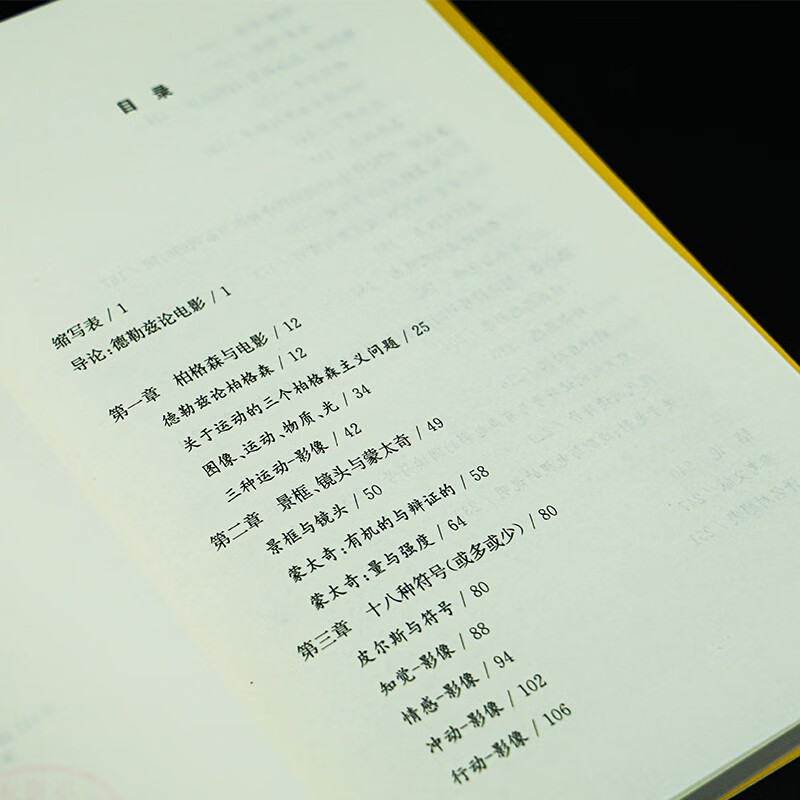 目 录
缩写表 / 1
导论:德勒兹论电影 / 1
第一章 柏格森与电影 / 12
德勒兹论柏格森 / 12
关于运动的三个柏格森主义问题 / 25
图像、运动、物质、光 / 34
三种运动-影像 / 42
第二章 景框、镜头与蒙太奇 / 49
景框与镜头 / 50
蒙太奇:有机的与辩证的 / 58
蒙太奇:量与强度 / 64
第三章 十八种符号(或多或少) / 80
皮尔斯与符号 / 80
知觉-影像 / 88
情感-影像 / 94
冲动-影像 / 102
行动-影像 / 106